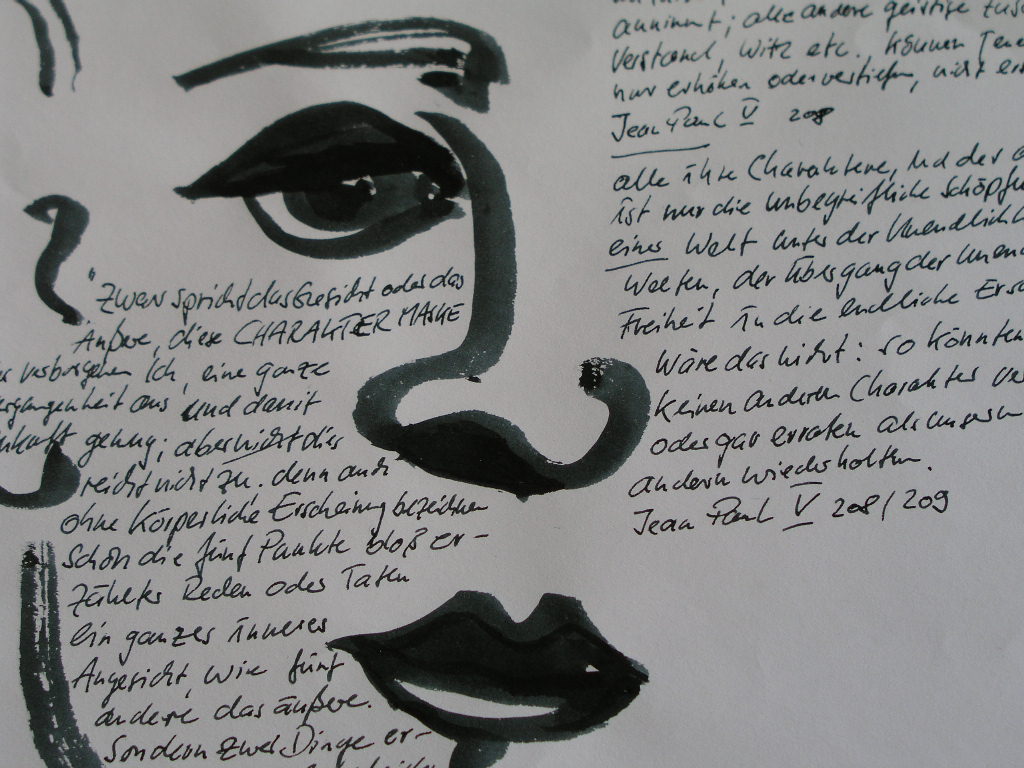 annimmt; alle andere geistige
Verstand, Witz etc. können
nur erhöhen oder vertiefen, nicht
Jean Paul V 208
alle ihre Charaktere, und der
ist nur die unbegreifliche Schöpfu
einer Welt unter der Unendlichk
Welten, der Übergang der Unen
Freiheit in die endliche Ersch
Wäre das nicht: so könnten
keinen anderen Charakter
oder gar erraten als unsern
andern wiederholten.
Jean Paul V 208/209
"Zwar spricht das Gesicht oder das
Äußere, diese CHARAKTER MASKE
verborgenen Ich, eine ganze
ergangenheit aus und damit
ukunft genug; aber nicht dies
reicht nicht zu. denn auch
ohne körperliche Erscheinung bezeichnen
schon die fünf Punkte bloß er-
zählter Reden oder Taten
ein ganzes inneres
Angesicht, wie fünf
andere das äußere.
Sondern zwei Dinge er-